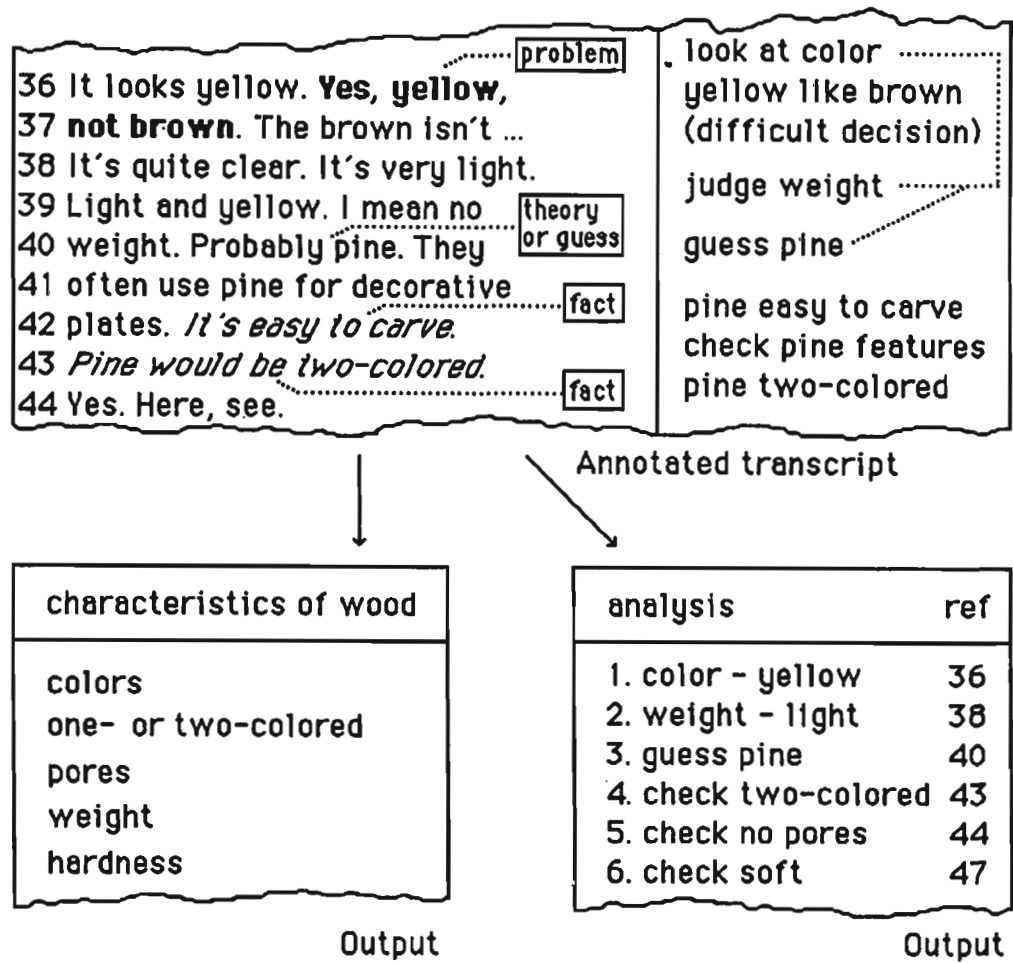 problem
36 It looks yellow. Yes, yellow,
37 not brown. The brown isn't ...
38 It's quite clear. It's very light.
39 Light and yellow. I mean no
40 weight. Probably pine. They
41 often use pine for decorative
42 plates. It's easy to carve.
43 Pine would be two-colored.
44 Yes. Here, see.
theory
or guess
fact
fact
look at color
yellow like brown
(difficult decision)
judge weight
guess pine
pine easy to carve
check pine features
pine two-colored
Annotated transcript
characteristics of wood
colors
one- or two-colored
pores
weight
hardness
Output
analysis ref
1. color - yellow 36
2. weight - light 38
3. guess pine 40
4. check two-colored 43
5. check no pores 44
6. check soft 47
Output